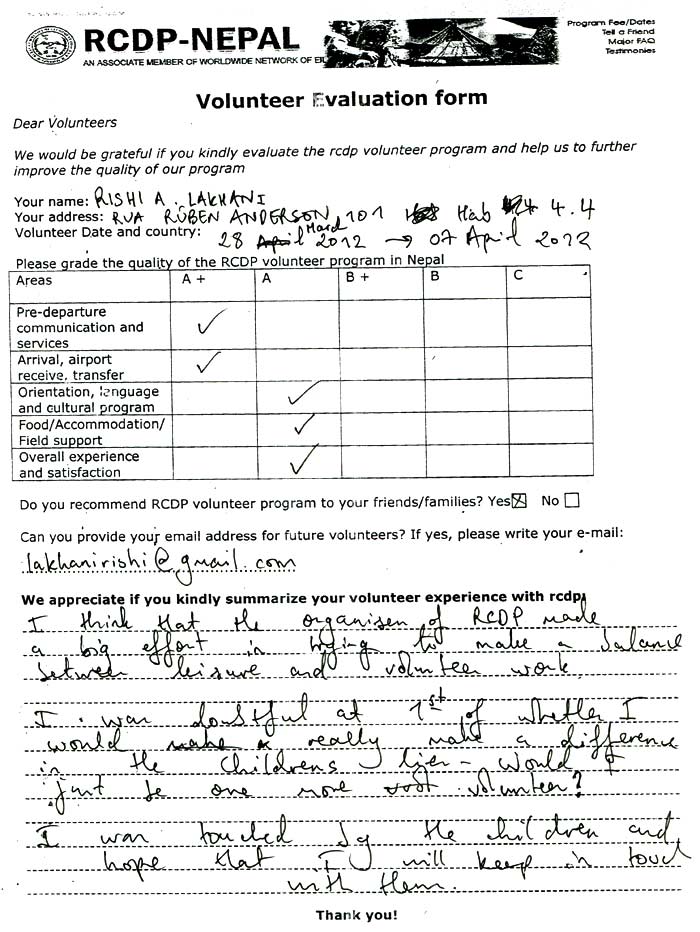 Program Fee/Dates
Tell a Friend
Major FAQ
Testimonies
RCDP-NEPAL
AN ASSOCIATE MEMBER OF WORLDWIDE NETWORK OF
Volunteer Evaluation form
Dear Volunteers
We would be grateful if you kindly evaluate the rcdp volunteer program and help us to further
improve the quality of our program
Your name: RISHI A. LAKHANI
Your address: RUA RÚBEN ANDERSON, 101 Hab 4.4
Volunteer Date and country: 28 March 2012 → 07 April 2012
Please grade the quality of the RCDP volunteer program in Nepal
Areas A + A B + B C
Pre-departure
communication and
services ✓
Arrival, airport
receive, transfer ✓
Orientation, language
and cultural program ✓
Food/Accommodation/
Field support ✓
Overall experience
and satisfaction ✓
Do you recommend RCDP volunteer program to your friends/families? Yes☒ No ☐
Can you provide your email address for future volunteers? If yes, please write your e-mail:
lakhanirishi@gmail.com
We appreciate if you kindly summarize your volunteer experience with rcdp.
I think that the organisen of RCDP made
a big effort in trying to make a balance
between leisure and volunteer work.
I was doubtful at 1st of whether I
would really make a difference
in the childrens lives - would I
just be one more volunteer?
I was touched by the children and
hope that I will keep in touch
with them.
Thank you!